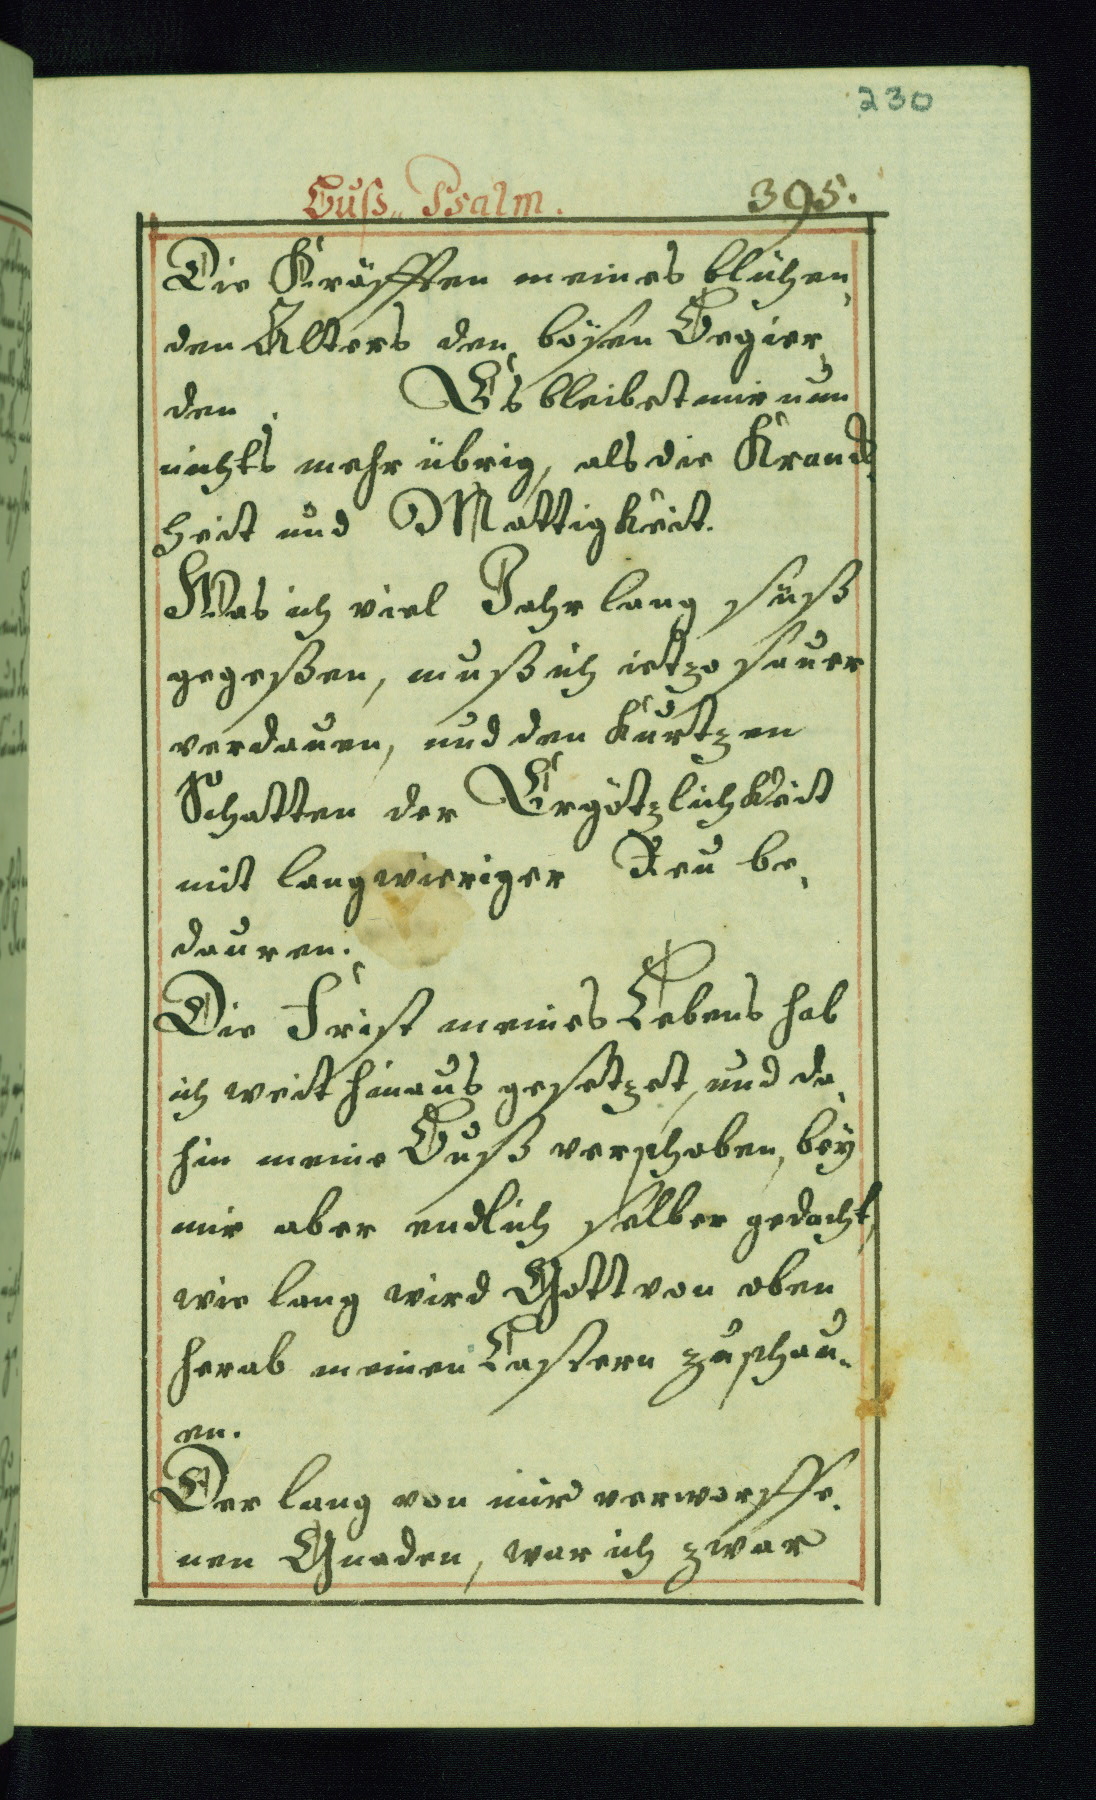 230
Buß-Psalm. 395.
Die Kräfften meines blühen-
den Alters den bösen Begier-
den. Es bleibet mir nun
nichts mehr übrig, als die Kranck-
heit und Mattigkeit.
Was ich viel Jahr lang süß
gegeßen, muß ich ietzo sauer
verdauen, und den kurtzen
Schatten der Ergötzlichkeit
mit langwieriger Reu be-
dauren.
Die Frist meines Lebens hab
ich weit hinaus gesetzet, und da-
hin meine Buß verschoben, bey
mir aber endlich selber gedacht,
wie lang wird Gott von oben
herab meinen Lastern zuschau-
en.
Der lang von mir verworffe-
nen Gnaden, war ich zwar